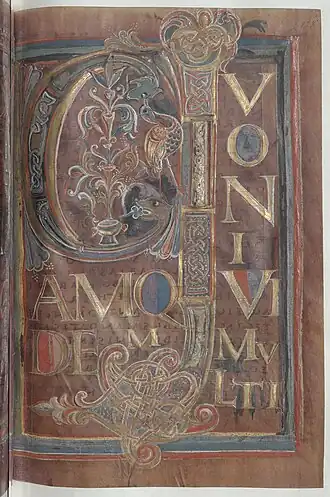 Q V
O
N
I
AMQ VI
DE M MV
LTI